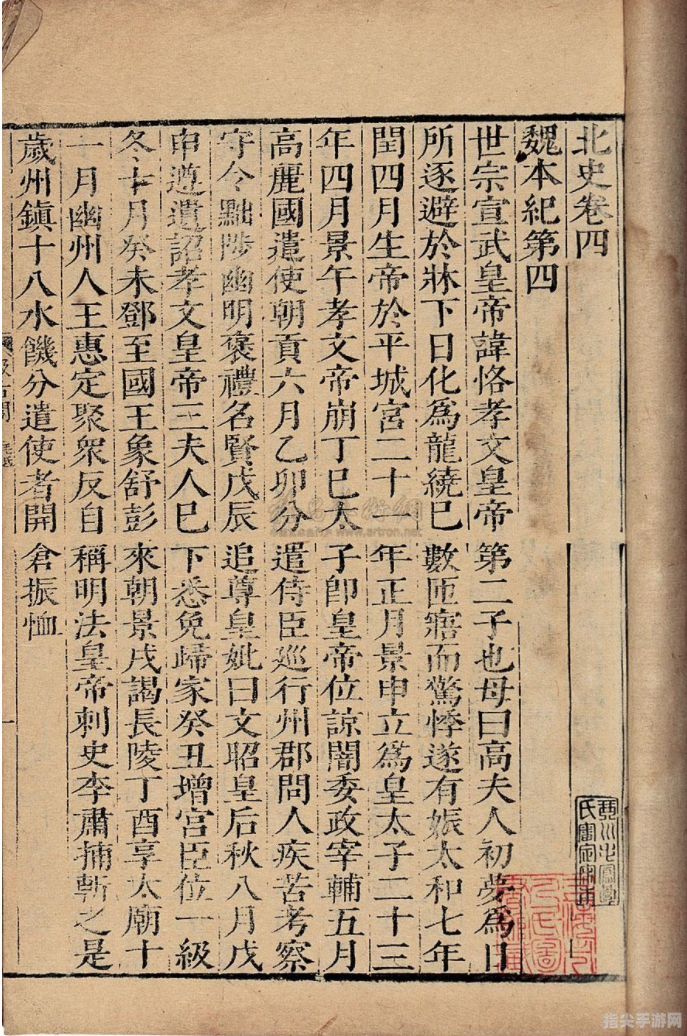 北史卷四
魏本紀第四
世宗宣武皇帝諱恪孝文皇帝第二子也母曰高夫人初夢爲日
所逐避於牀下日化爲龍繞巳數匝寤而驚悸遂有娠太和七年
閏四月生帝於平城宮二十一年正月景申立爲皇太子二十三
年四月景午孝文帝崩丁巳太子卽皇帝位諒闇委政宰輔五月
高麗國遣使朝貢六月乙卯分遣侍臣巡行州郡問人疾苦考察
守令黜陟幽明褒禮名賢戊辰追尊皇妣曰文昭皇后秋八月戊
申遵遺詔孝文皇帝三夫人巳下悉免歸家癸丑增宮臣位一級
冬十月癸未鄧至國王象舒彭來朝景戌謁長陵丁酉享太廟十
一月幽州人王惠定聚衆反自稱明法皇帝刺史李肅捕斬之是
歲州鎮十八水饑分遣使者開倉振恤
一
指尖手游网